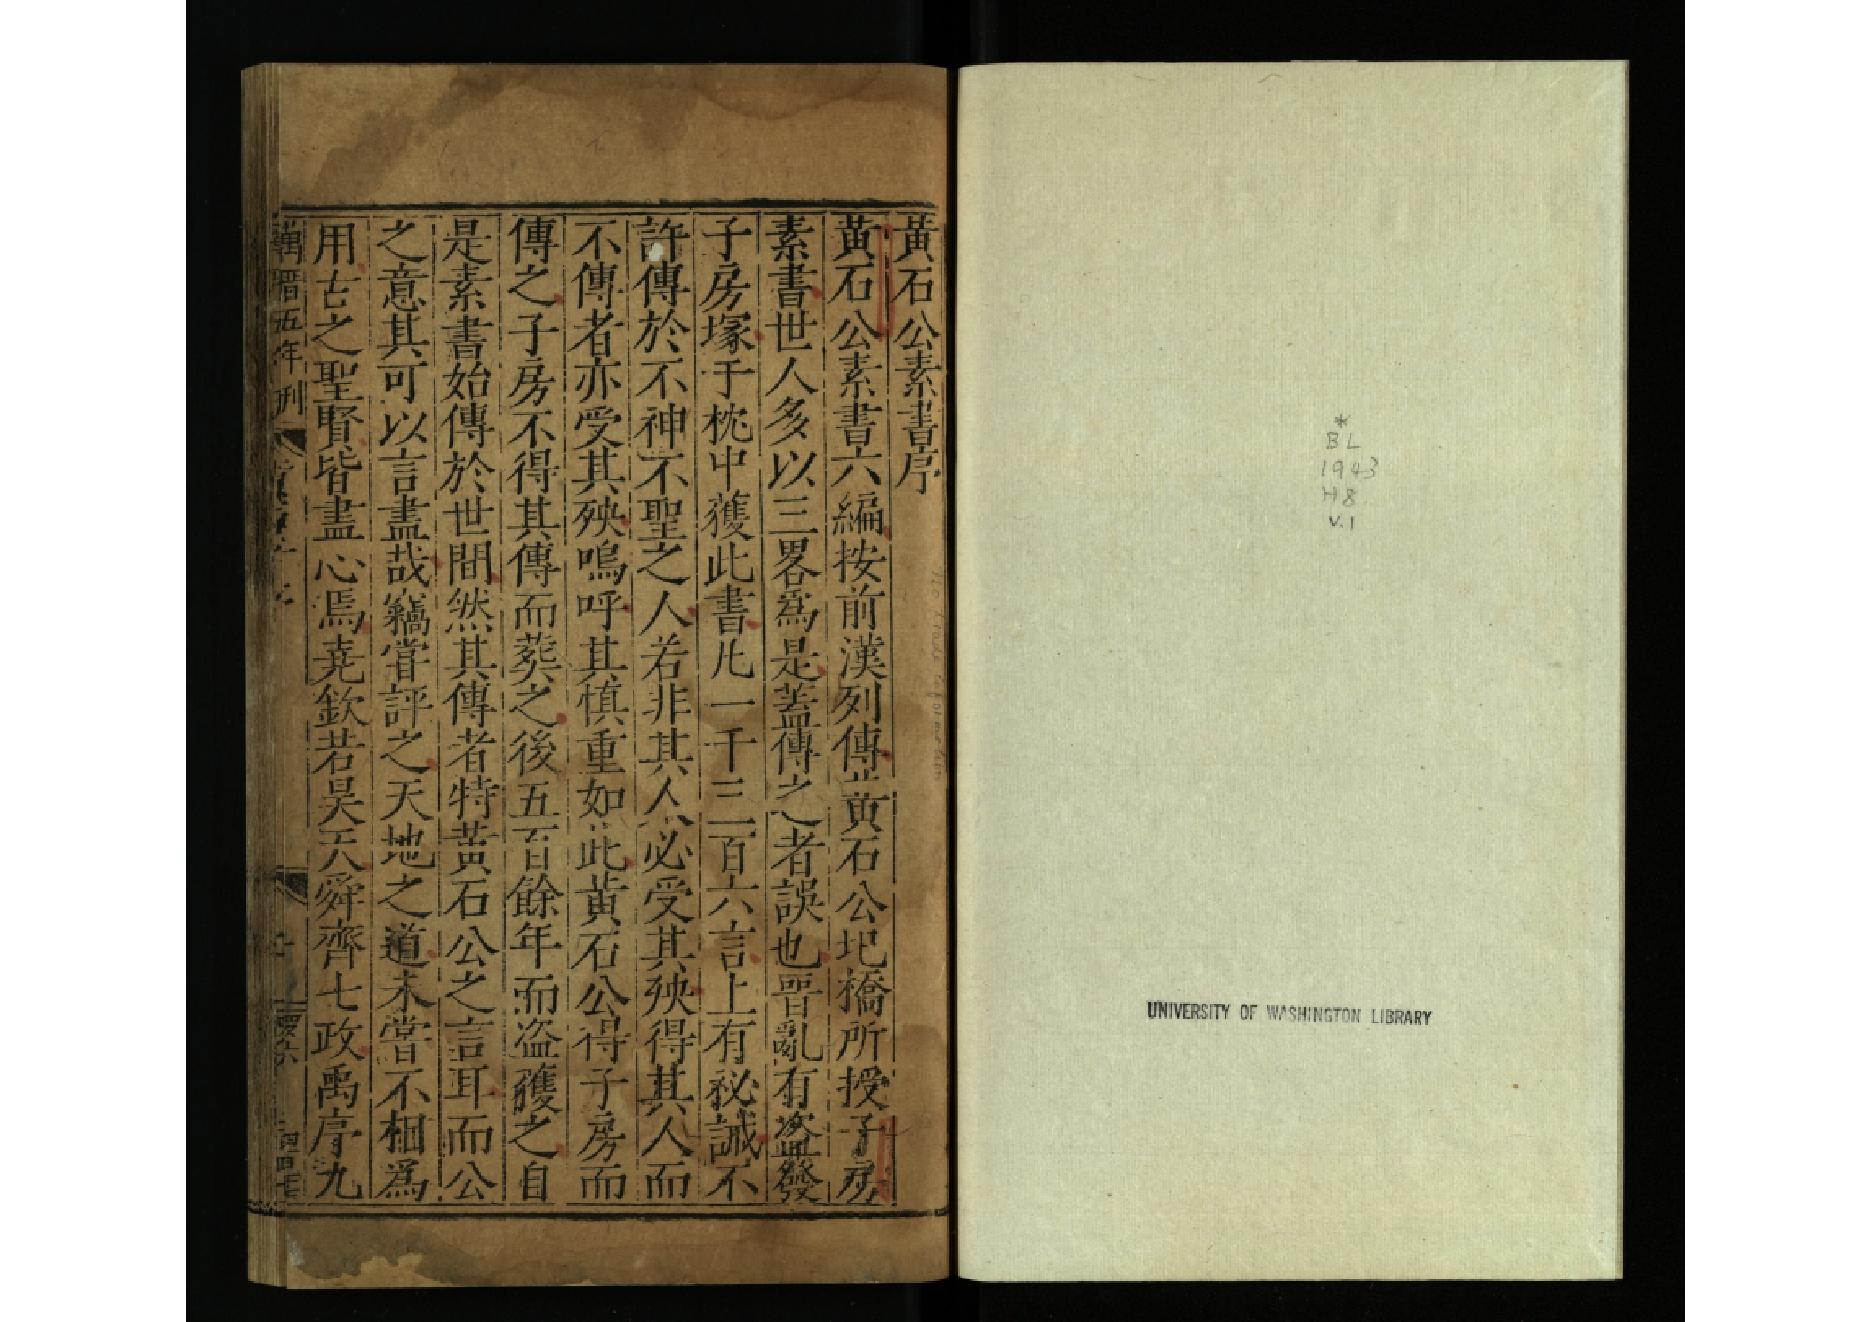 黃石公素書序
黃石公素書六編按前漢列傳黃石公圯橋所授子房
素書世人多以三畧爲是蓋傳之者誤也晉亂有盜發
子房塚于枕中獲此書凡一千三百六言上有秘誡不
許傳於不神不聖之人若非其人必受其殃得其人而
不傳者亦受其殃嗚呼其慎重如此黃石公得子房而
傳之子房不得其傳而葬之後五百餘年而盜獲之自
是素書始傳於世間然其傳者特黃石公之言耳而公
之意其可以言盡哉竊嘗評之天地之道未嘗不相爲
用古之聖賢皆盡心焉堯欽若昊天舜齊七政禹序九
萬曆五年刊
*
BL
1943
H8
V.1
UNIVERSITY OF WASHINGTON LIBRARY